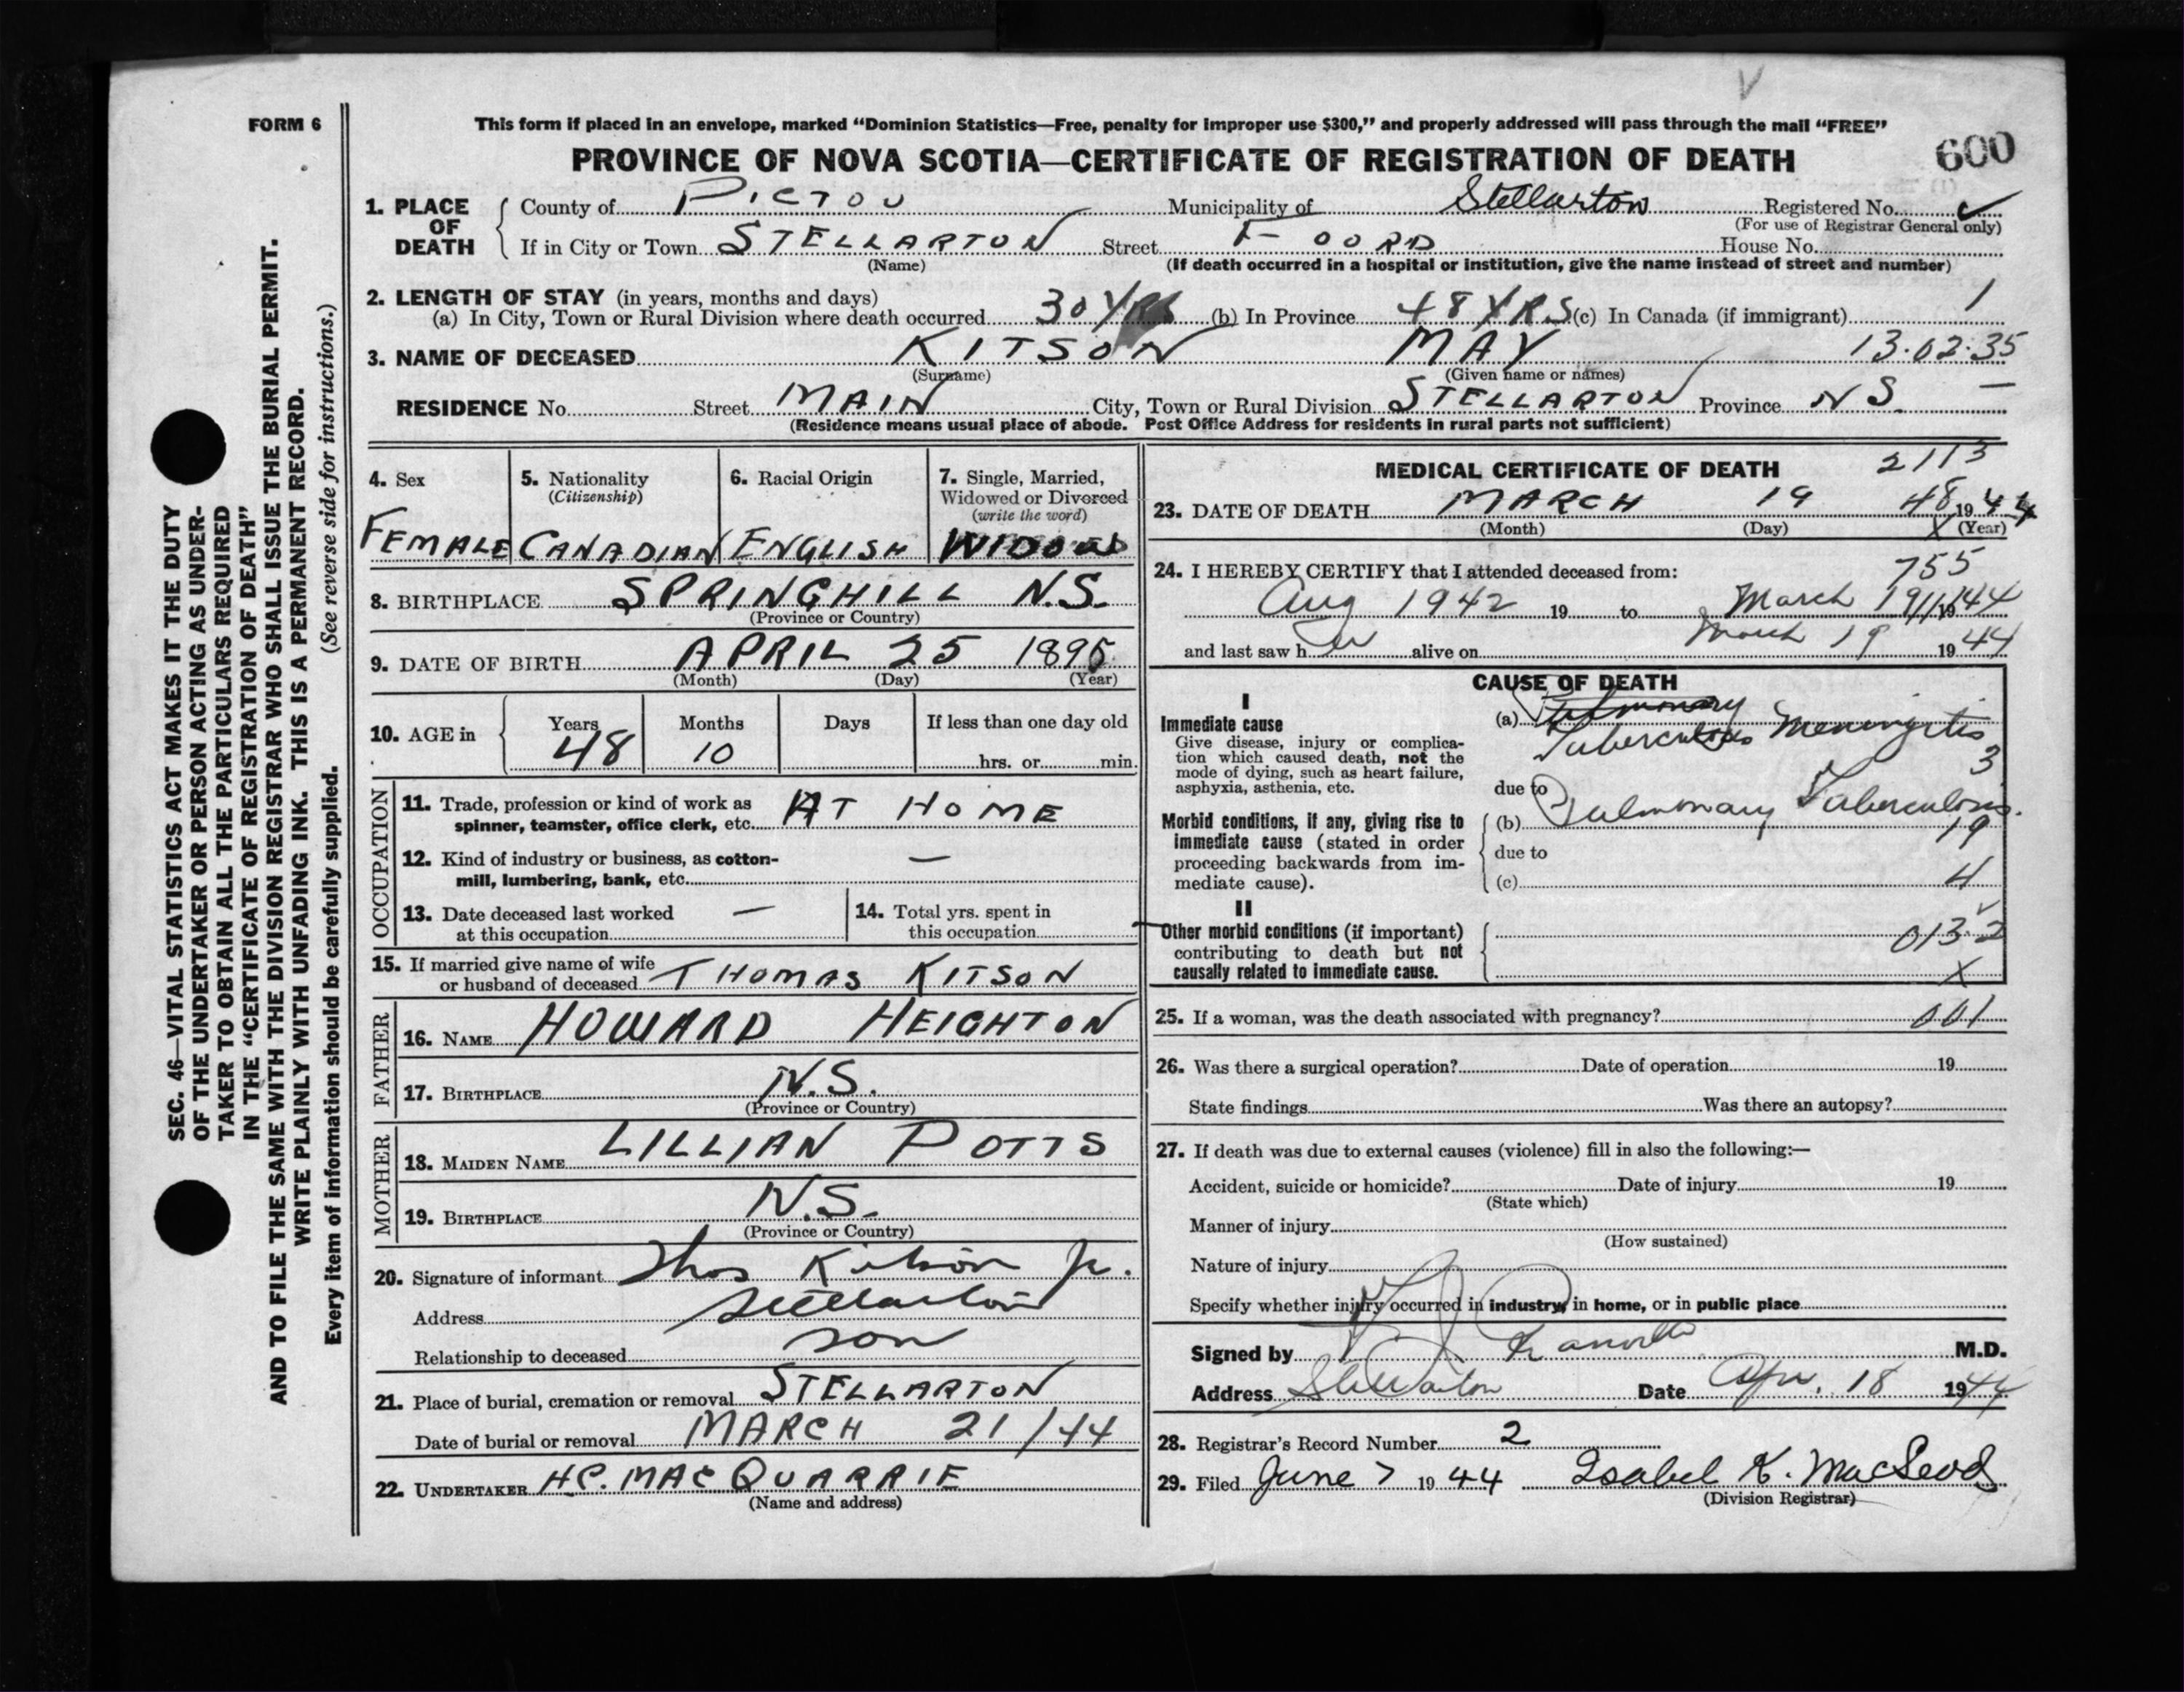 FORM 6
This form if placed in an envelope, marked “Dominion Statistics—Free, penalty for improper use $300,” and properly addressed will pass through the mail “FREE”
PROVINCE OF NOVA SCOTIA—CERTIFICATE OF REGISTRATION OF DEATH
600
1. PLACE OF DEATH
County of PICTOU Municipality of Stellarton Registered No. ✓
(For use of Registrar General only)
If in City or Town STELLARTON Street FOORD House No.
(Name) (If death occurred in a hospital or institution, give the name instead of street and number)
2. LENGTH OF STAY (in years, months and days)
(a) In City, Town or Rural Division where death occurred 30 YRS (b) In Province 48 YRS (c) In Canada (if immigrant) 1
3. NAME OF DECEASED KITSON MAY 13.02.35
(Surname) (Given name or names)
RESIDENCE No. Street MAIN City, Town or Rural Division STELLARTON Province N S. —
(Residence means usual place of abode. Post Office Address for residents in rural parts not sufficient)
4. Sex
FEMALE
5. Nationality
(Citizenship)
CANADIAN
6. Racial Origin
ENGLISH
7. Single, Married,
Widowed or Divorced
(write the word)
8. BIRTHPLACE SPRINGHILL N.S.
(Province or Country)
9. DATE OF BIRTH APRIL 25 1895
(Month) (Day) (Year)
10. AGE in
Years Months Days If less than one day old
48 10
hrs. or min.
OCCUPATION
11. Trade, profession or kind of work as AT HOME
spinner, teamster, office clerk, etc.
12. Kind of industry or business, as cotton- —
mill, lumbering, bank, etc.
13. Date deceased last worked —
at this occupation
14. Total yrs. spent in
this occupation
15. If married give name of wife
or husband of deceased THOMAS KITSON
FATHER
16. NAME HOWARD HEIGHTON
17. BIRTHPLACE N.S.
(Province or Country)
MOTHER
18. MAIDEN NAME LILLIAN POTTS
19. BIRTHPLACE N.S.
(Province or Country)
20. Signature of informant Thos Kitson Jr.
Address Stellarton
Relationship to deceased son
21. Place of burial, cremation or removal STELLARTON
Date of burial or removal MARCH 21/44
22. UNDERTAKER H.C. MACQUARRIE
(Name and address)
MEDICAL CERTIFICATE OF DEATH
2113
23. DATE OF DEATH MARCH 19 48 1944
(Month) (Day) X (Year)
24. I HEREBY CERTIFY that I attended deceased from: 755
Aug 1942 19 to March 19 1944
and last saw her alive on March 19 1944
CAUSE OF DEATH
I
Immediate cause
Give disease, injury or complica-
tion which caused death, not the
mode of dying, such as heart failure,
asphyxia, asthenia, etc.
(a) Pulmonary
Tuberculous Meningitis
3
due to
Morbid conditions, if any, giving rise to
immediate cause (stated in order
proceeding backwards from im-
mediate cause).
(b) Pulmonary Tuberculosis.
19
due to
(c) 4
II
Other morbid conditions (if important)
contributing to death but not
causally related to immediate cause.
013.2
X
25. If a woman, was the death associated with pregnancy? 001
26. Was there a surgical operation? Date of operation 19
State findings Was there an autopsy?
27. If death was due to external causes (violence) fill in also the following:—
Accident, suicide or homicide? Date of injury 19
(State which)
Manner of injury
(How sustained)
Nature of injury
Specify whether injury occurred in industry, in home, or in public place
Signed by M.D.
Address Stellarton Date Apr. 18 1944
28. Registrar's Record Number 2
29. Filed June 7 1944 Isabel K. MacLeod
(Division Registrar)
SEC. 46—VITAL STATISTICS ACT MAKES IT THE DUTY
OF THE UNDERTAKER OR PERSON ACTING AS UNDER-
TAKER TO OBTAIN ALL THE PARTICULARS REQUIRED
IN THE “CERTIFICATE OF REGISTRATION OF DEATH”
AND TO FILE THE SAME WITH THE DIVISION REGISTRAR WHO SHALL ISSUE THE BURIAL PERMIT.
WRITE PLAINLY WITH UNFADING INK. THIS IS A PERMANENT RECORD.
Every item of information should be carefully supplied. (See reverse side for instructions.)